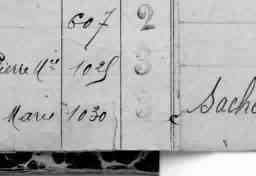 607 2
Pierre Mie 1025 3
Marie 1030 3
Sach